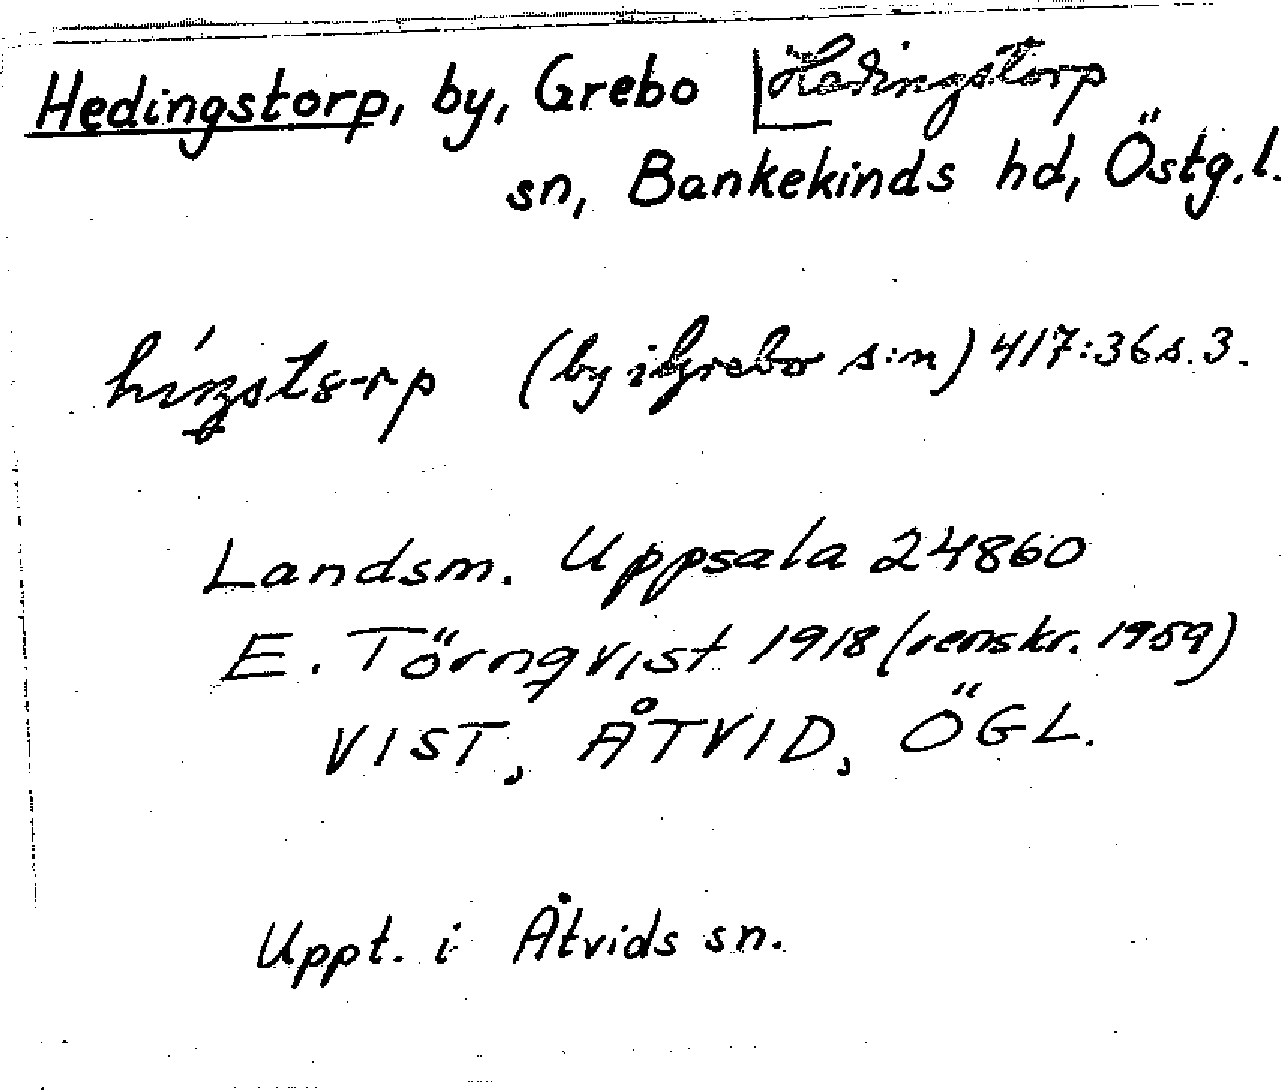 Hedingstorp, by, Grebo Hedingstorp
sn, Bankekinds hd, Östg.l.
(by i Grebo s:n) 417:36 s. 3.
Landsm. Uppsala 24860
E. Törnqvist 1918 (renskr. 1959)
VIST, ÅTVID, ÖGL.
Uppt. i Åtvids sn.